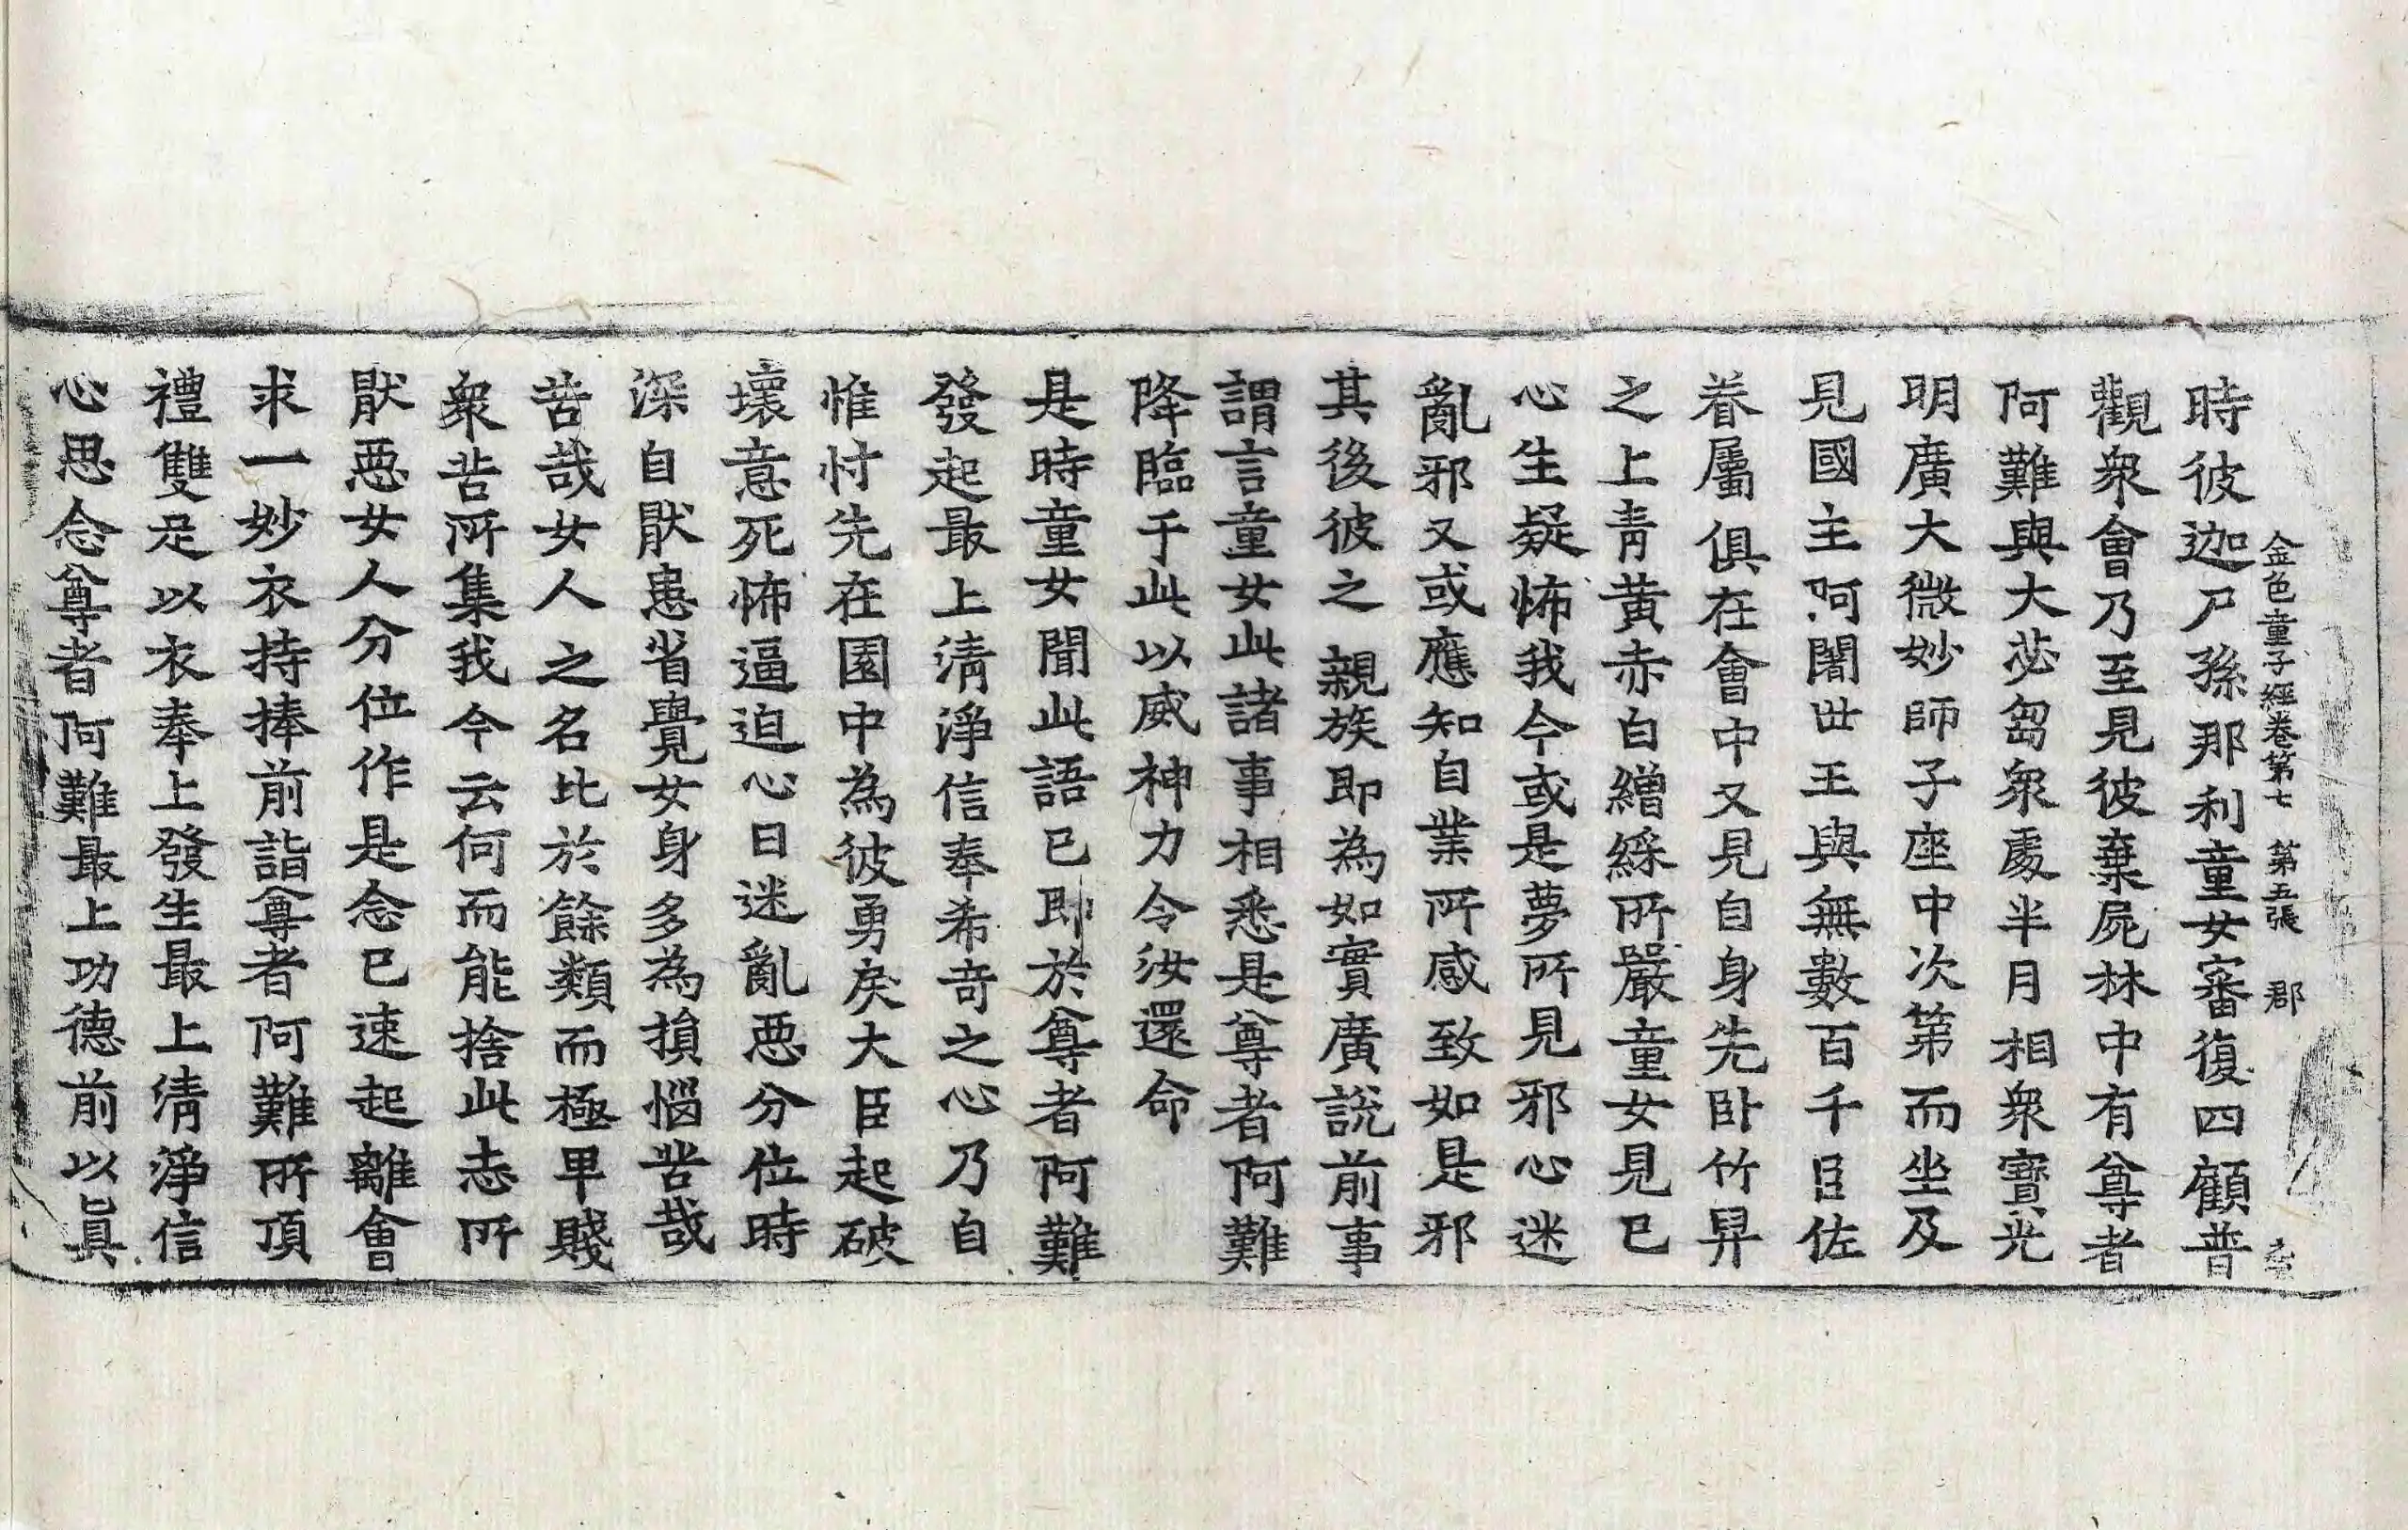 金色童子經卷第七 第五張 郡
時彼迦尸孫那利童女審復四顧普
觀衆會乃至見彼棄屍林中有尊者
阿難與大苾芻衆處半月相衆寶光
明廣大微妙師子座中次第而坐及
見國主阿闍世王與無數百千臣佐
眷屬俱在會中又見自身先卧竹舁
之上青黄赤白繒綵所嚴童女見已
心生疑怖我今或是夢所見邪心迷
亂邪又或應知自業所感致如是邪
其後彼之親族即為如實廣說前事
謂言童女此諸事相悉是尊者阿難
降臨于此以威神力令汝還命
是時童女聞此語已即於尊者阿難
發起最上清淨信奉希奇之心乃自
惟忖先在園中為彼勇戾大臣起破
壞意死怖逼迫心日迷亂惡分位時
深自猒患省覺女身多為損惱苦哉
苦哉女人之名比於餘類而極卑賤
衆苦所集我今云何而能捨此志所
猒惡女人分位作是念已速起離會
求一妙衣持捧前詣尊者阿難所頂
禮雙足以衣奉上發生最上清淨信
心思念尊者阿難最上功德前以眞